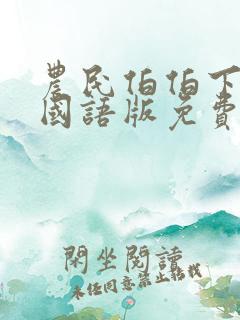 農民伯伯下
國語版免費
閑坐閱讀
未經同意禁止轉載